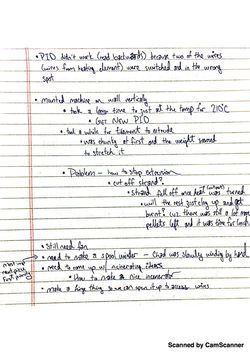 • PID didn't work (read backwards) because two of the wires
(wires from heating element) were switched and in the wrong
spot
• mounted machine on wall vertically
• took a long time to just at the temp for 210°C
• GET NEW PID
• took a while for filament to extrude
• was chunky at first and the weight seemed
to stretch it
• Problem - how to stop extrusion
• cut off strand?
• strand fell off once heat was turned
• will the rest just clog up and get
burnt? cuz there was still a lot more
pellets left and it was time for lunch
• Still need fan
• need to make a spool winder - Chad was slowly winding by hand
• need to come up w/
• How to make a nice
• make a hinge thing so we can open it up to access wires